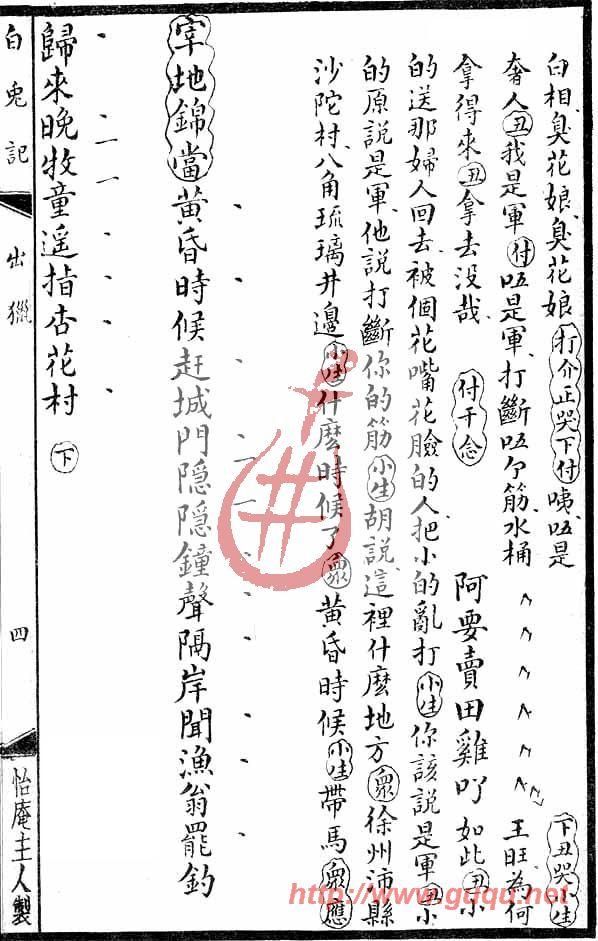 白相臭花娘臭花娘打介正哭下付咦唔是下丑哭小生
奢人丑我是軍付唔是軍打斷唔个筋水桶王旺為何
拿得來丑拿去没哉付干念阿要賣田雞吖如此丑小
的送那婦人回去被個花嘴花臉的人把小的亂打小生你該說是軍丑小
的原說是軍他說打斷你的筋小生胡說這裡什麼地方眾徐州沛縣
沙陀村八角琉璃井邊小生什麼時候了眾黃昏時候小生帶馬眾應
宰地錦當黃昏時候赶城門隱隱鐘聲隔岸聞漁翁罷釣
歸來晚牧童遥指杏花村下
白兔記 出獵 四 怡庵主人製
http://www.guqu.net